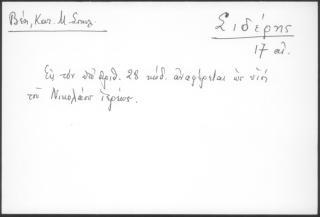 Βέη, Κατ. Μ. Σπηλ.
Σιδέρης
17 αἰ.
Εἰς τὸν ὑπ' ἀριθ. 28 κώδ. ἀναφέρεται ὡς υἱὸς
τοῦ Νικολάου ἱερέως.